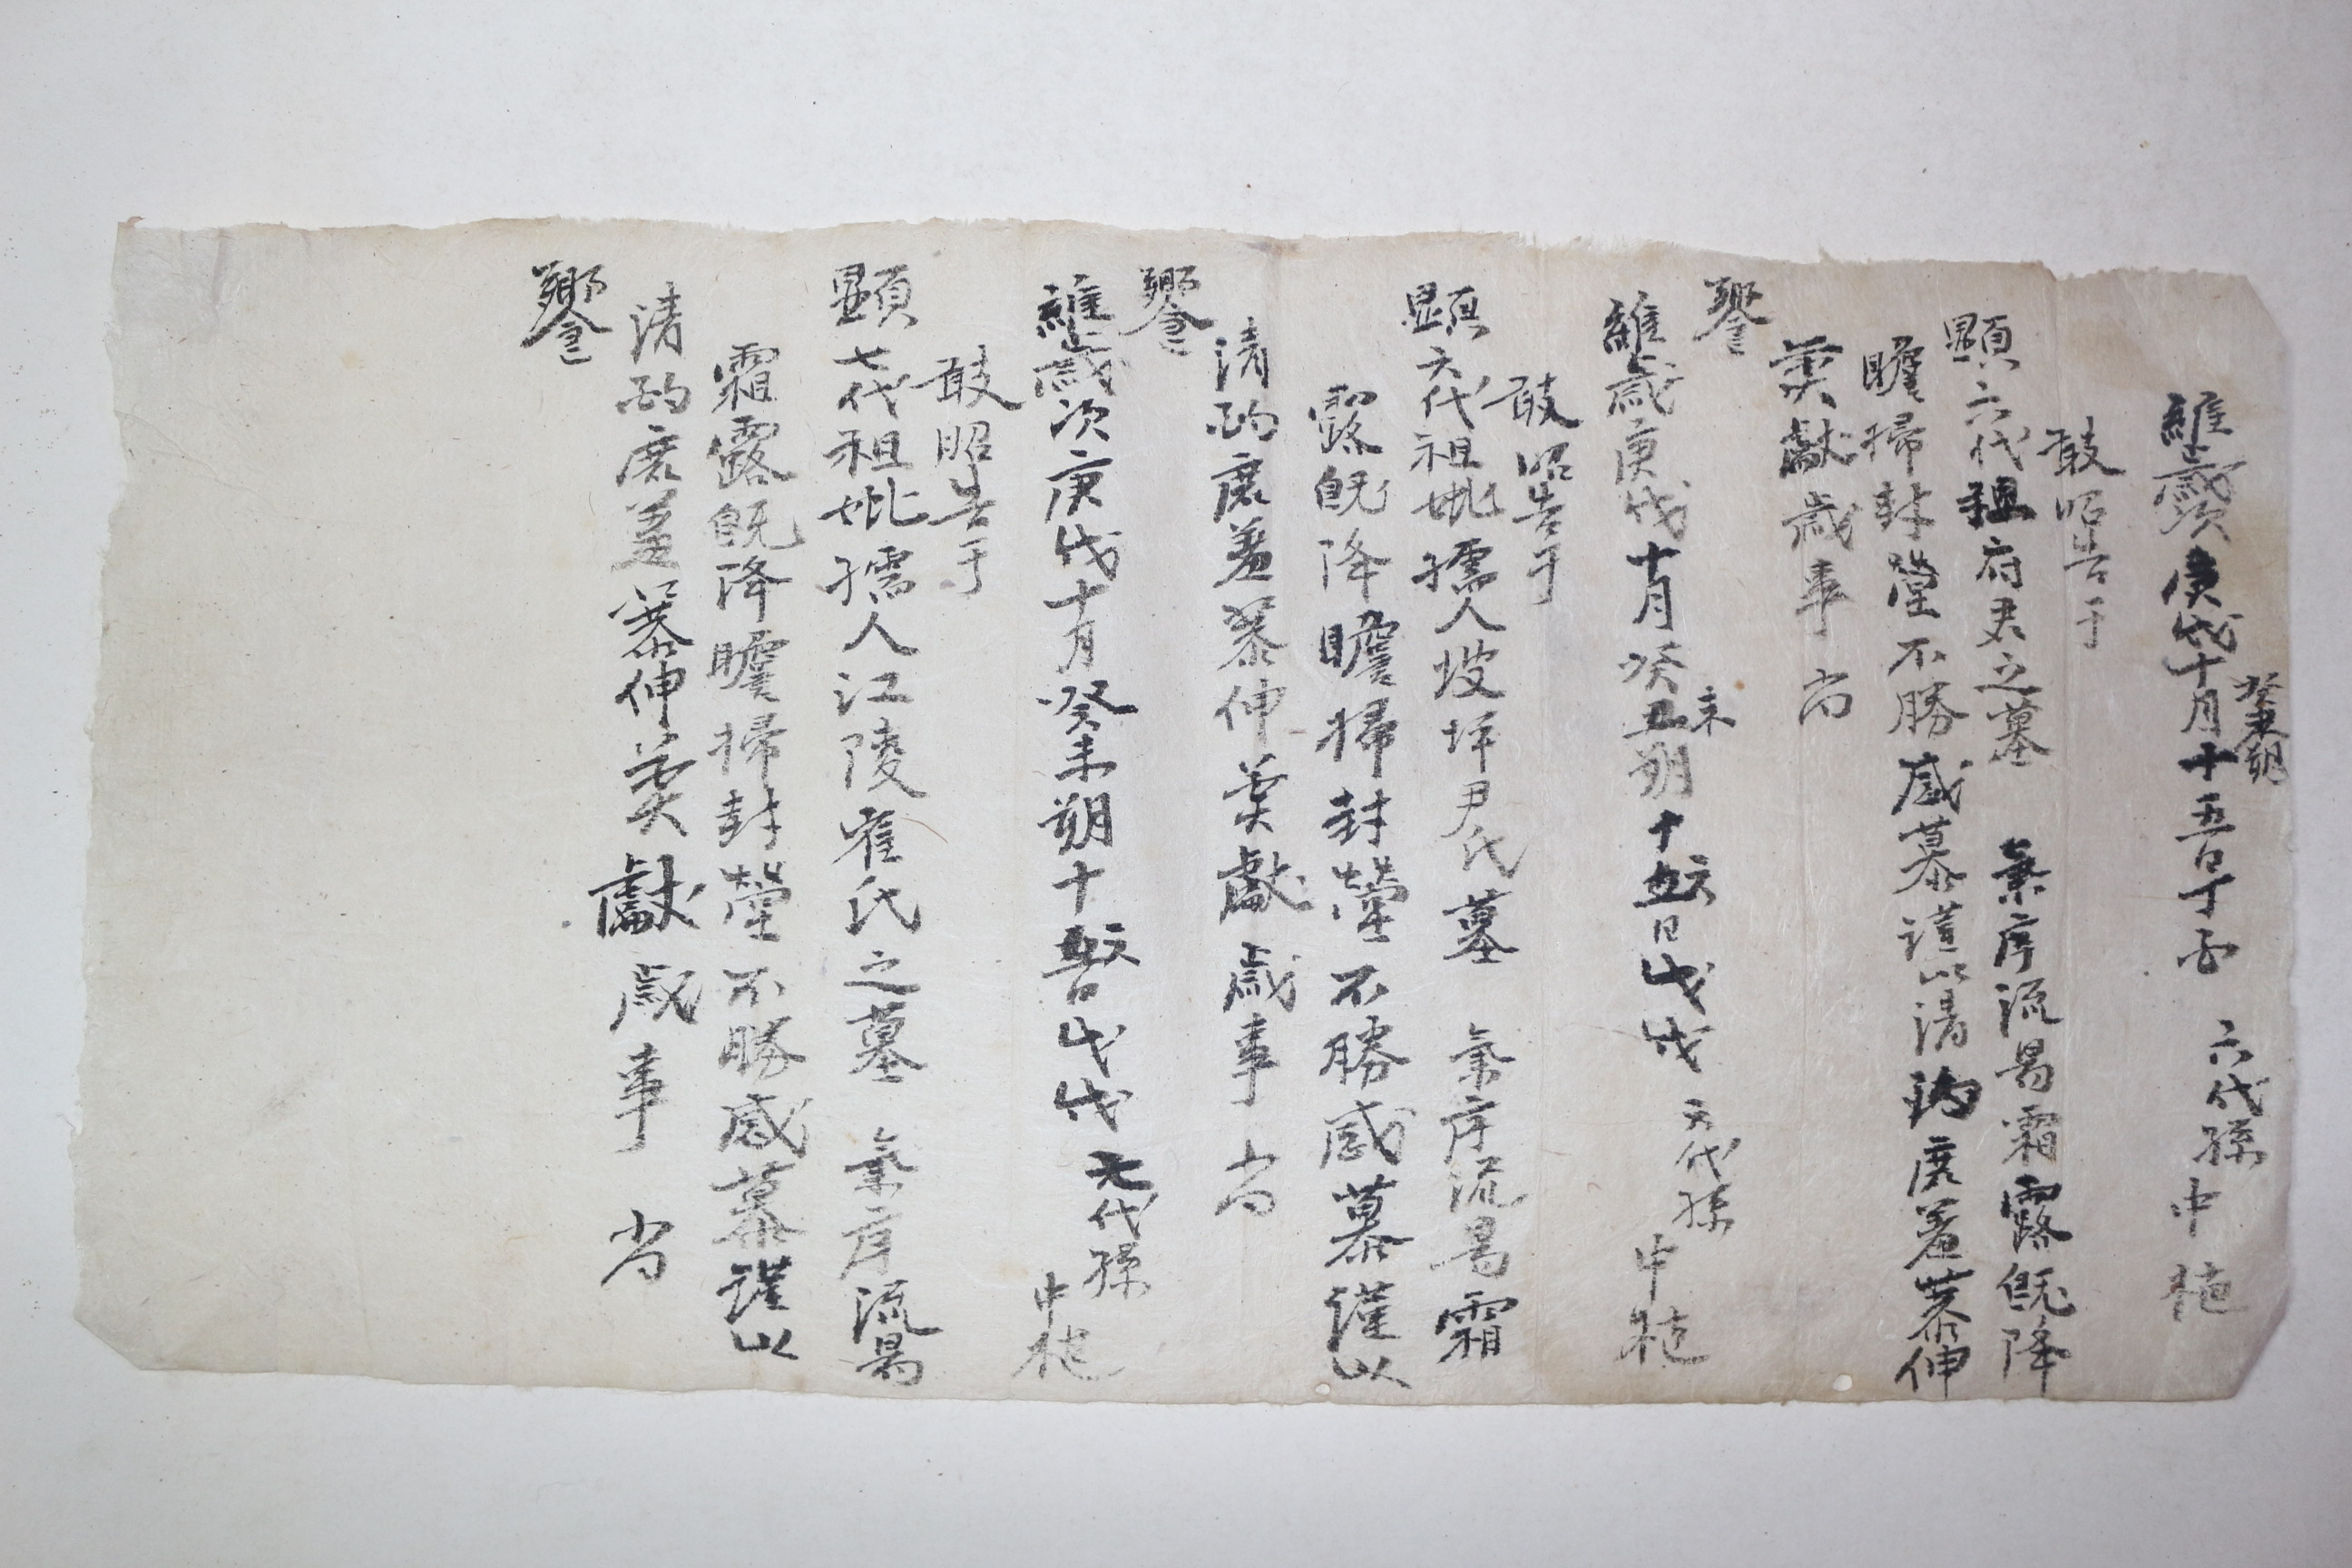 維歲次庚戌十月癸未朔十五日丁酉 六代孫中
敢昭告于
顯六代祖府君之墓 氣序流易霜露旣降
瞻掃封塋不勝感慕謹以淸酌庶羞恭伸
奠獻歲事 尙
饗
維歲庚戌十月癸未朔十六日戊戌 六代孫中
敢昭告于
顯六代祖妣孺人坡坪尹氏墓 氣序流易霜
露旣降瞻掃封塋不勝感慕謹以
清酌庶羞恭伸奠獻歲事 尙
饗
維歲次庚戌十月癸未朔十六日戊戌 七代孫中
敢昭告于
顯七代祖妣孺人江陵崔氏之墓 氣序流易
霜露旣降瞻掃封塋不勝感慕謹以
清酌庶羞恭伸奠獻歲事 尙
饗